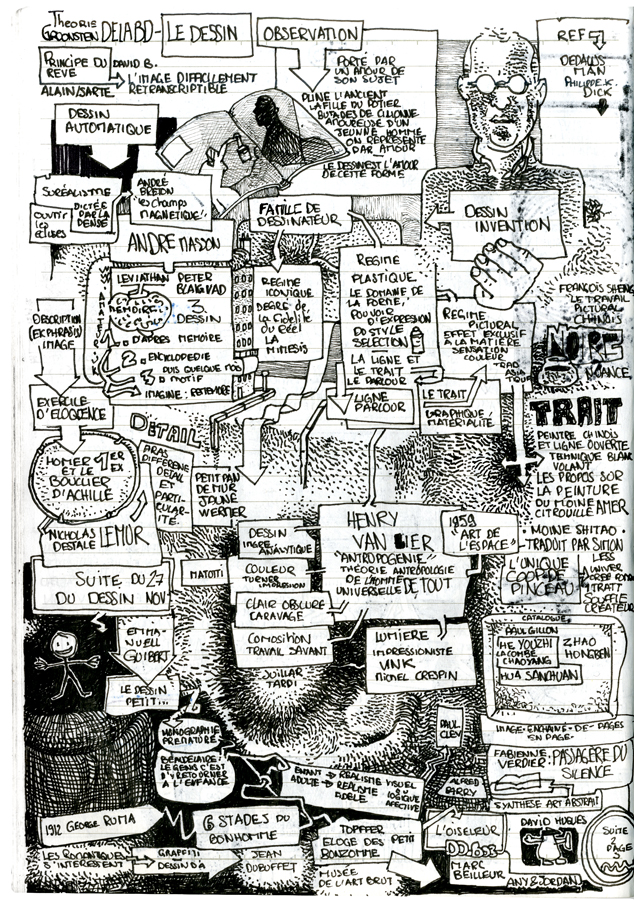 Theorie
GROENSTEN DELABD - LE DESSIN
OBSERVATION
REF
DEDALUS
MAN
PHILIPPE K.
DICK
PRINCIPE DU
REVE
DAVID B.
ALAIN/SARTE
L'IMAGE DIFFICILLEMENT
RETRANSCRIPTIBLE
PORTE PAR
UN AMOUR DE
SON SUJET
PLINE L'ANCIENT
LA FILLE DU POTIER
BUTADES DE
AMOUREUSE D'UN
JEUNNE HOMME
ON REPRESENTE
PAR AMOUR
LE DESSIN EST L'AMOUR
DE CETTE FORME
DESSIN
AUTOMATIQUE
SURÉALISME
OUVRIR
les
DICTÉE
PAR LA
DENSE
ANDRÉ
BRETON
"les champs
MAGNETIQUE"
ANDRE MASSON
FAMILLE DE
DESSINATEUR
DESSIN
INVENTION
LEVIATHAN
PETER
MEMOIRE
3.
DESSIN
1 D'APRES MEMOIRE
2. ENCYCLOPEDIE
PUIS QUELQUE MOIS
3 MOTIF
IMAGINE:
REGIME
ICONIQUE
DEGRE de
la fidelité
du Réel
LA
MIMESIS
REGIME
PLASTIQUE.
LE DOMAINE DE
LA FORME,
POUVOIR
D'EXPRESSION
DU STYLE
SELECTION
LA LIGNE ET
LE TRAIT
LE PARCOUR
REGIME
PICTURAL
EFFET EXCLUSIF
A LA MATIÈRE
SENSATION
COULEUR
TRAD
ASIA
TIQUE
FRANÇOIS SHENG
LE TRAVAIL
PICTURAL
CHINOIS
NOIRE
NUANCE
DESCRIPTION
(EKPHRASIS)
IMAGE
EXERCILE
D'ELOQUENCE
HOMER 1er
ET LE EX
BOUCLIER
D'ACHILLE
NICHOLAS
DESTALE LEMÖR
DÉTAIL
ARAS
DIFFERENE
DÉTAIL
ET
PARTI
CULAR
ITÉ.
PETIT PAN
DE MUR
JAUNE
WERTIER
LIGNE
PARCOOR
LE TRAIT
GRAPHIQUE/
MATERIALITÉ
TRAIT
PEINTRE CHINOIS
ET LIGNE OUVERTE
TECHNIQUE BLANC
VOLANT
LES PROPOS SUR
LA PEINTURE
DU MOINE
CITROUILLE AMER
· MOINE SHITAO ·
- TRADUIT PAR SIMON
LESS
L'UNIQUE
COOP DE
PINCEAU
1 TRAIT
SOUFFLE
CRÉATEUR
DESSIN
INGRE
ANALYTIQUE
COULEUR
TURNER
IMPRESSION
CLAIR OBSCURE
CARAVAGE
COMPOSITION
TRAVAIL SAVANT
JUILLAR
TARDI
HENRY
VAN LIER
"ANTROPOGENIE"
THÉORIE ANTROPOLOGIE
DE L'HOMME
UNIVERSELLE DE TOUT
1959
"ART DE
L'ESPACE"
LUMIERE
IMPRESSIONISTE
VINK
MICHEL CRESPIN
MATOTTI
SUITE DU 27
DU DESSIN NOV
EMMA-
NUELL
GUIBERT
LE DESSIN
PETIT...
MONOGRAPHIE
PREMATURE
BEAUDELAIRE:
LE GENIS C'EST
D'Y RETOURNER
A L'ENFANCE
CATALOGUE
PAUL GILLON
HE YOUZHI
LACOMBE
CHAOYANG
ZHAO
HONGBEN
HUA SANCHUAN
IMAGE · ENCHAINE · DE · PAGES
EN PAGE.
FABIENNE
VERDIER: PASSAGÈRE DU
SILENCE
SYNTHÈSE ART ABSTRAIT
PAUL
CLEY
ALFRED
BARRY
ENFANT → REALISTE VISUEL
ADULTE → REALISME
LOGIQUE
AFECTIVE
1912 GEORGE ROMA
6 STADES DU
BONHOMME
LES ROMANTIQUES
S'INTERESSENT
GRAFFITI
DESSIN D'A
JEAN
DUBUFFET
TOPFFER
ELOGE DES PETIT
BONZOMME
MUSÉE
DE L'ART BRUT
L'OISELEUR
MARC
BEILLEUR
DAVID HUGUES
ANY & JORDAN
SUITE
PAGE
3